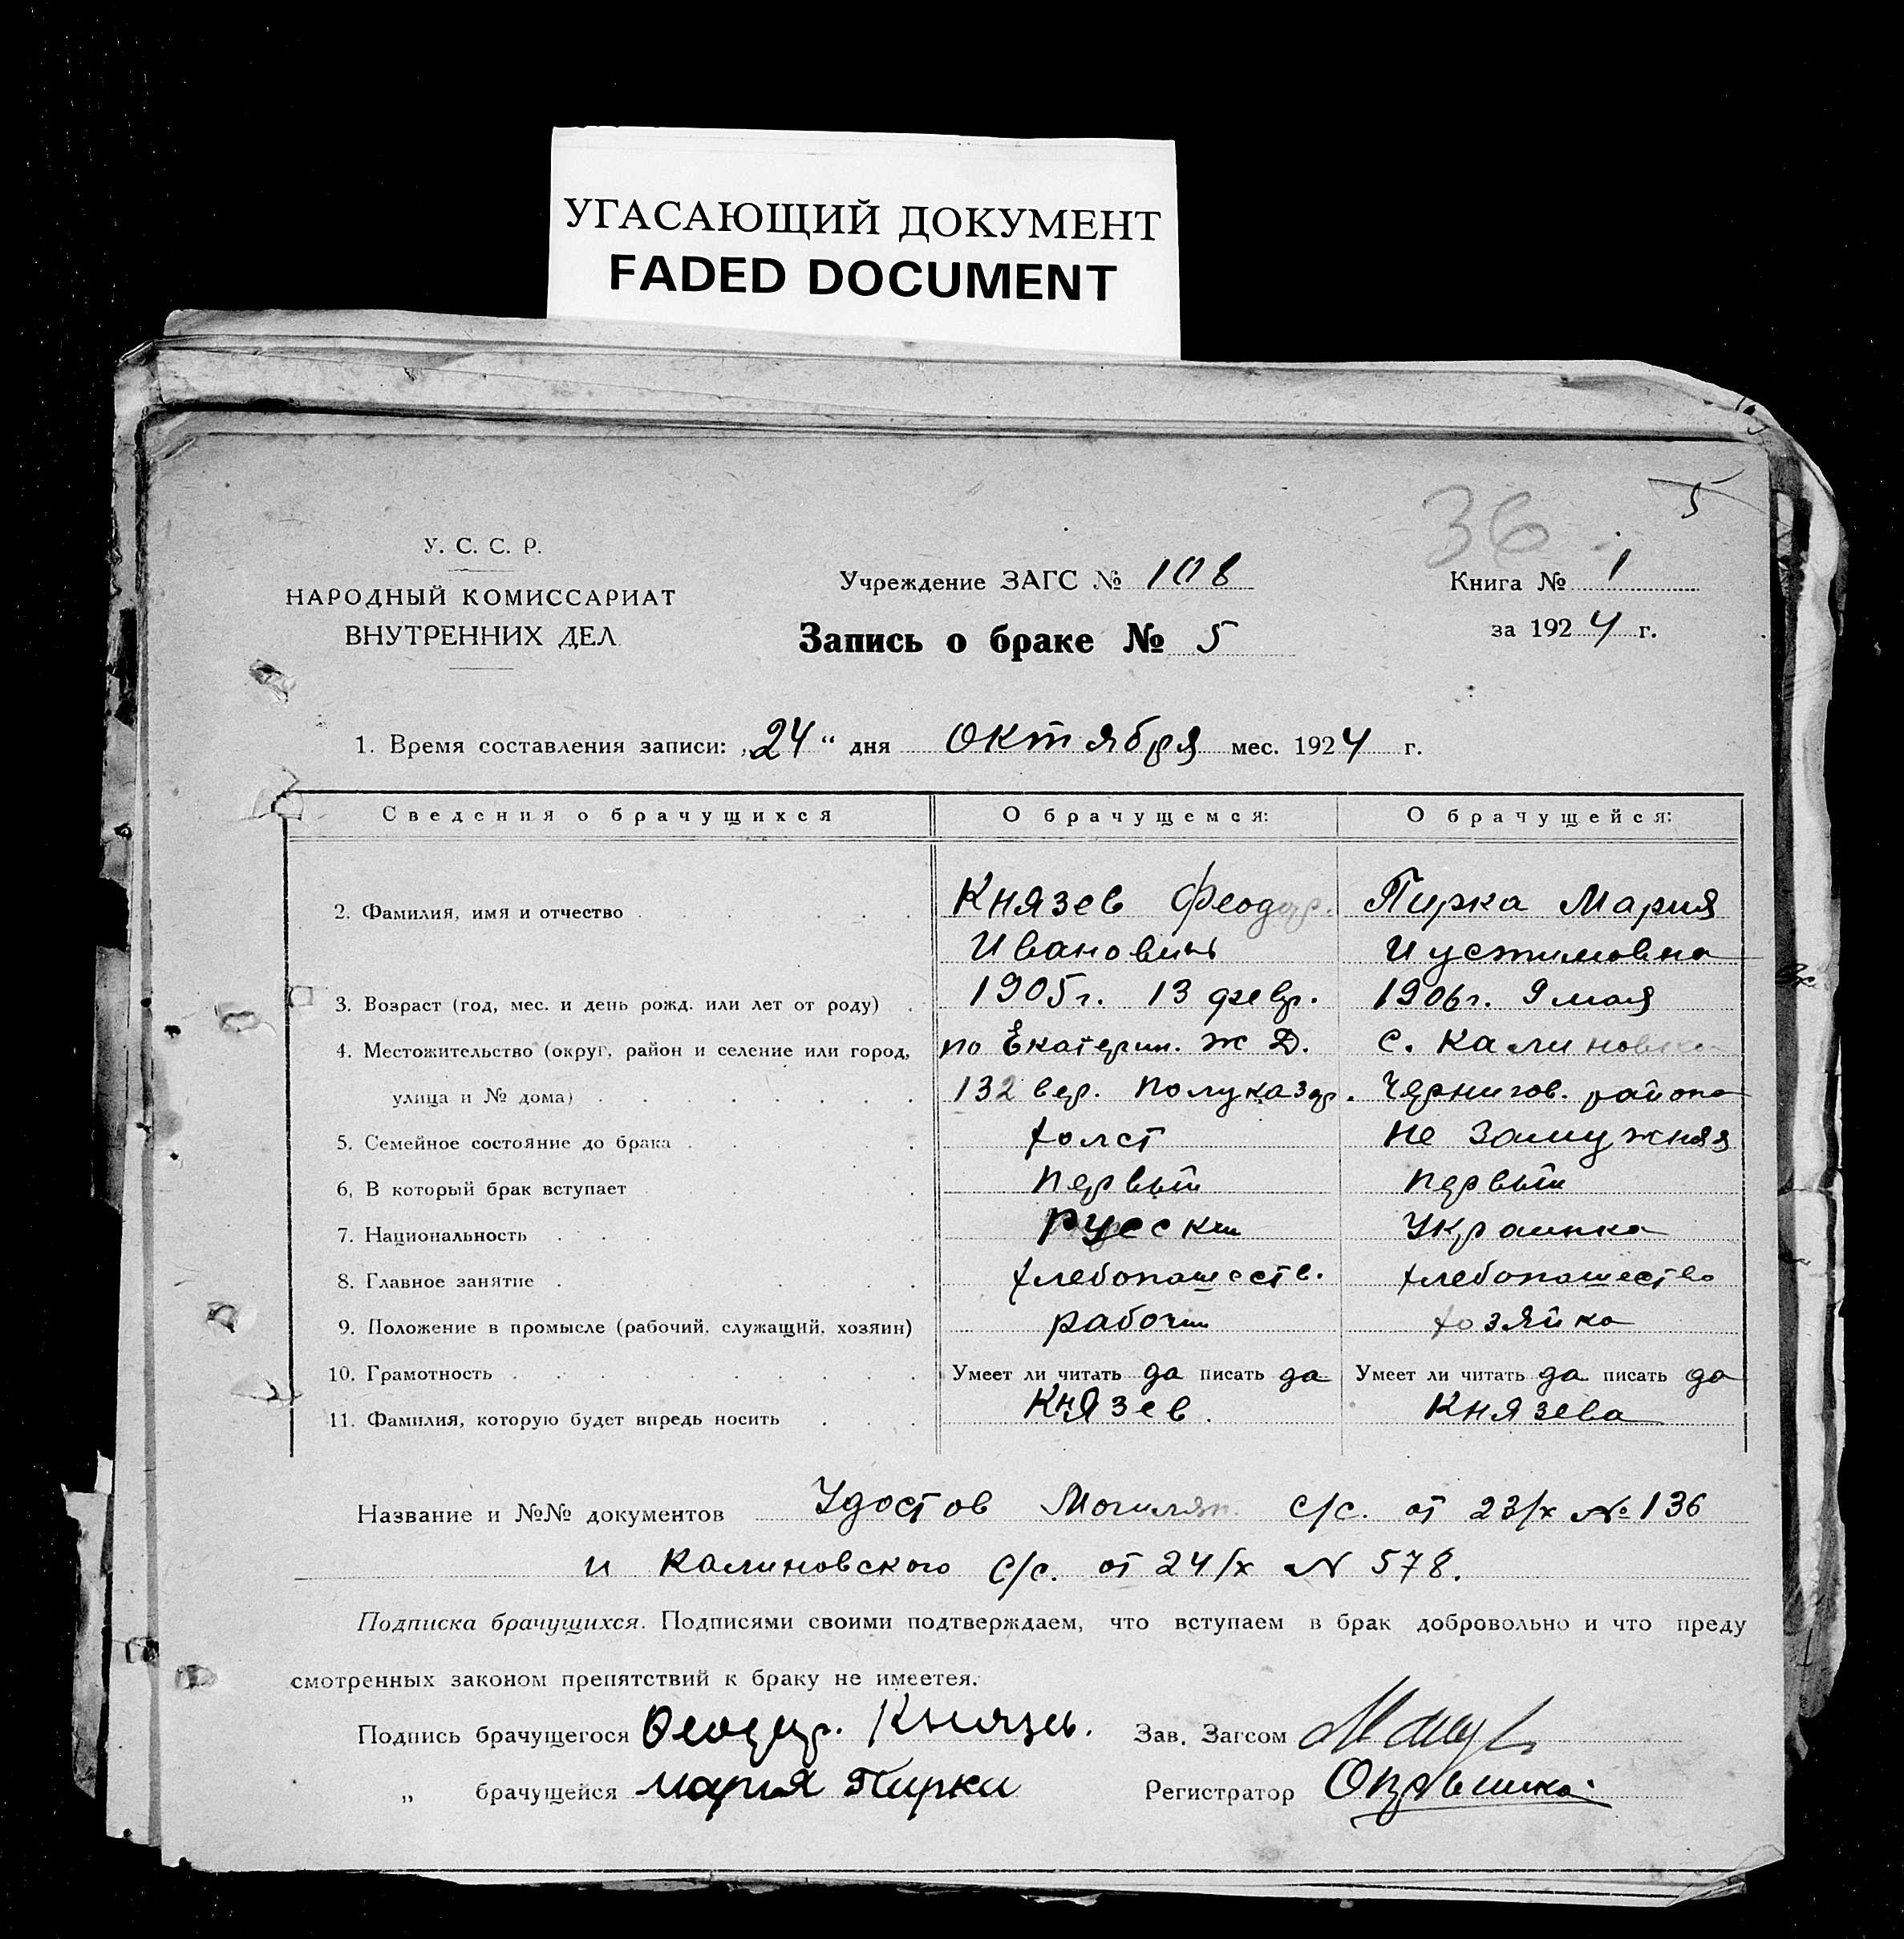 УГАСАЮЩИЙ ДОКУМЕНТ
FADED DOCUMENT
5
36
У. С. С. Р.
НАРОДНЫЙ КОМИССАРИАТ
ВНУТРЕННИХ ДЕЛ
Учреждение ЗАГС № 108
Запись о браке № 5
Книга № 1
за 1924 г.
1. Время составления записи: „24“ дня октября мес. 1924 г.
Сведения о брачущихся О брачущемся: О брачущейся:
2. Фамилия, имя и отчество Князев Феодор. Пирка Мария
Иванович Иустимовна
3. Возраст (год, мес. и день рожд. или лет от роду) 1905г. 13 февр. 1906г. 9 мая
4. Местожительство (округ, район и селение или город, по Екатерин. Ж Д. с. Калиновка
улица и № дома) 132 вер. полуказар. Чернигов. района
5. Семейное состояние до брака холст не замужняя
6. В который брак вступает первый первый
7. Национальность русский Украинка
8. Главное занятие хлебопашеств. хлебопашество
9. Положение в промысле (рабочий, служащий, хозяин) рабочий хозяйка
10. Грамотность Умеет ли читать да писать да Умеет ли читать да писать да
11. Фамилия, которую будет впредь носить Князев. Князева
Название и №№ документов Удостов Могилян. с/с. от 23/х № 136
и Калиновского с/с. от 24/х N 578.
Подписка брачущихся. Подписями своими подтверждаем, что вступаем в брак добровольно и что преду
смотренных законом препятствий к браку не имеетея.
Подпись брачущегося Феодор. Князев. Зав. Загсом
„ брачущейся Мария Пирки Регистратор